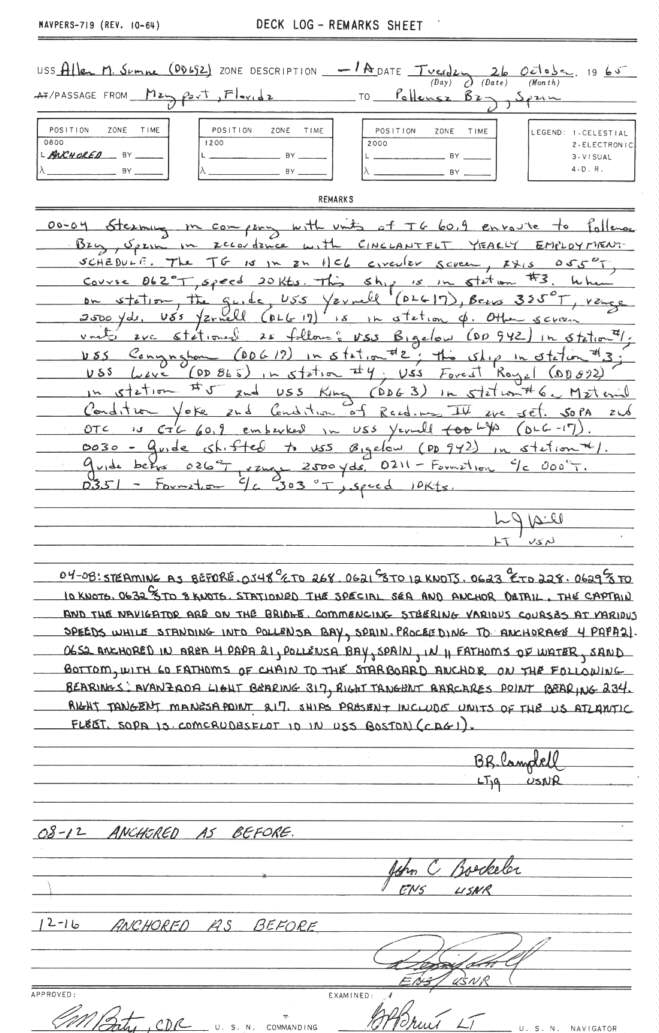 NAVPERS-719 (REV. 10-64) DECK LOG – REMARKS SHEET
USS Allen M. Sumner (DD692) ZONE DESCRIPTION -1A DATE Tuesday 26 October, 1965
(Day) (Date) (Month)
AT/PASSAGE FROM Mayport, Florida TO Pollensa Bay, Spain
POSITION ZONE TIME POSITION ZONE TIME POSITION ZONE TIME LEGEND: 1-CELESTIAL
0800 1200 2000 2-ELECTRONIC
L ANCHORED BY L BY L BY 3-VISUAL
λ BY λ BY λ BY 4-D. R.
REMARKS
00-04 Steaming in company with units of TG 60.9 enroute to Pollensa
Bay, Spain in accordance with CINCLANTFLT YEARLY EMPLOYMENT
SCHEDULE. The TG is in an 11C6 circular screen, axis 055°T,
Course 062°T, speed 20 Kts. This ship is in station #3. When
on station, the guide, USS Yarnell (DLG 17), Bears 325°T, range
2500 yds. USS Yarnell (DLG 17) is in station φ. Other screen
units are stationed as follows: USS Bigelow (DD 942) in station #1;
USS Conyngham (DDG 17) in station #2; this ship in station #3;
USS (DD 865) in station #4; USS Forest Royal (DD 872)
in station #5 and USS King (DDG 3) in station #6. Material
Condition Yoke and Condition of Readiness IV are set. SOPA and
OTC is CTG 60.9 embarked in USS Yarnell (DLG-17).
0030 - Guide shifted to USS Bigelow (DD 942) in station #1.
Guide bears 026°T, range 2500 yds. 0211 - Formation c/c 000°T.
0351 - Formation c/c 303°T, speed 10Kts.
LT USN
04-08: STEAMING AS BEFORE. 0548 C/C TO 268. 0621 C/S TO 12 KNOTS. 0623 C/C TO 228. 0629 C/S TO
10 KNOTS. 0632 C/S TO 8 KNOTS. STATIONED THE SPECIAL SEA AND ANCHOR DETAIL. THE CAPTAIN
AND THE NAVIGATOR ARE ON THE BRIDGE. COMMENCING STEERING VARIOUS COURSES AT VARIOUS
SPEEDS WHILE STANDING INTO POLLENSA BAY, SPAIN. PROCEEDING TO ANCHORAGE 4 PAPA 21.
0652 ANCHORED IN AREA 4 PAPA 21, POLLENSA BAY, SPAIN, IN 11 FATHOMS OF WATER, SAND
BOTTOM, WITH 60 FATHOMS OF CHAIN TO THE STARBOARD ANCHOR ON THE FOLLOWING
BEARINGS: AVANZADA LIGHT BEARING 317, RIGHT TANGENT POINT BEARING 234.
RIGHT TANGENT MANESA POINT 217. SHIPS PRESENT INCLUDE UNITS OF THE US ATLANTIC
FLEET. SOPA IS COMCRUDESFLOT 10 IN USS BOSTON (CAG1).
B.R. Campbell
LTjg USNR
08-12 ANCHORED AS BEFORE.
John C Boeckeler
ENS USNR
12-16 ANCHORED AS BEFORE
ENS USNR
APPROVED: EXAMINED:
CDR U. S. N. COMMANDING LT U. S. N. NAVIGATOR